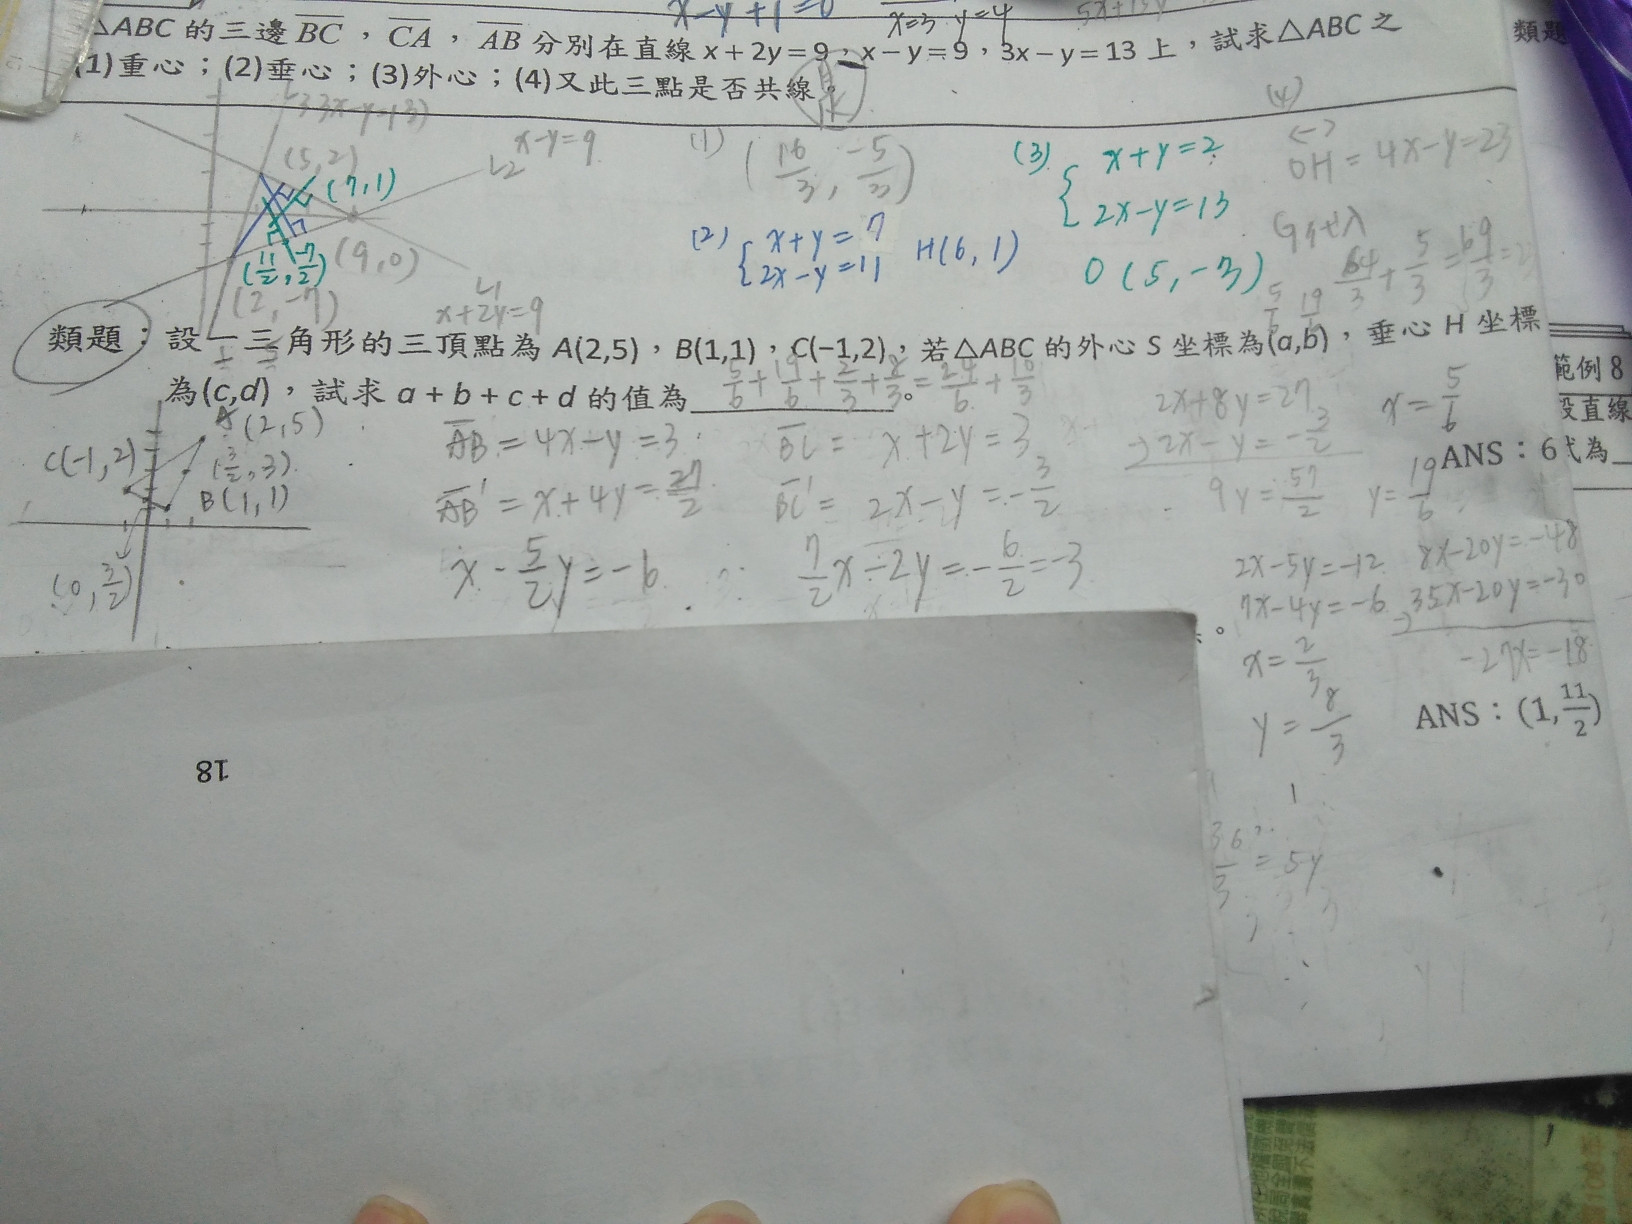 x-y+1=0
x=3 y=4
△ABC 的三邊 BC，CA，AB 分別在直線 x+2y=9，x-y=9，3x-y=13 上，試求△ABC 之
(1)重心；(2)垂心；(3)外心；(4)又此三點是否共線。
類題
是
3x-y=13
x-y=9
L2
(5,2)
(7,1)
(9,0)
(11/2, -7/2)
(2,-7)
L1
x+2y=9
(1) (16/3, -5/3)
(2) { x+y=7
2x-y=11
H(6,1)
(3) { x+y=2
2x-y=13
O(5,-3)
(4)
OH = 4x-y=23
G代入
64/3 + 5/3 = 69/3 = 23
類題：設一三角形的三頂點為 A(2,5)，B(1,1)，C(−1,2)，若△ABC 的外心 S 坐標為(a,b)，垂心 H 坐標
為(c,d)，試求 a+b+c+d 的值為 。
5/6 + 19/6 + 2/3 + 8/3 = 24/6 + 10/3
範例 8
設直線
ANS：6
為
A(2,5)
C(-1,2)
(3/2,3)
B(1,1)
(0,3/2)
AB = 4x-y=3
BC = x+2y=3
AB' = x+4y=27/2
BC' = 2x-y=-3/2
x-5/2y=-6
7/2x-2y=-6/2=-3
2x+8y=27
2x-y=-3/2
9y=57/2
x=5/6
y=19/6
2x-5y=-12
8x-20y=-48
7x-4y=-6
35x-20y=-30
-27x=-18
x=2/3
y=8/3
ANS：(1,11/2)
36/3=5y
18